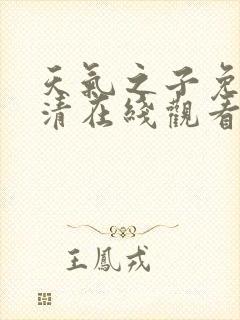 天氣之子免
清在綫觀看
王鳳戎